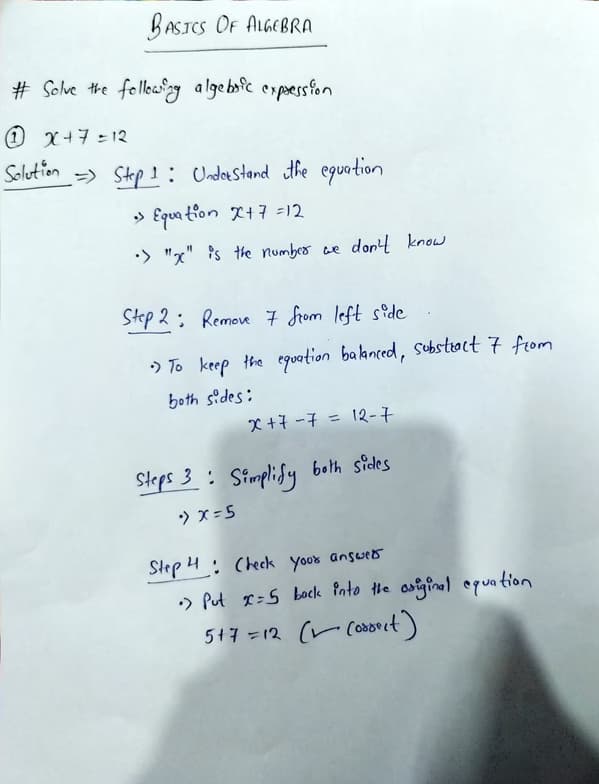 BASICS OF ALGEBRA
# Solve the following algebric expression
① x+7=12
Solution => Step 1 : Understand the equation
•> Equation x+7=12
•> "x" is the number we don't know
Step 2 : Remove 7 from left side
•> To keep the equation balanced, substract 7 from
both sides:
x+7-7 = 12-7
Steps 3 : Simplify both sides
•> x=5
Step 4 : Check your answers
•> Put x=5 back into the original equation
5+7=12 (✓ Correct)